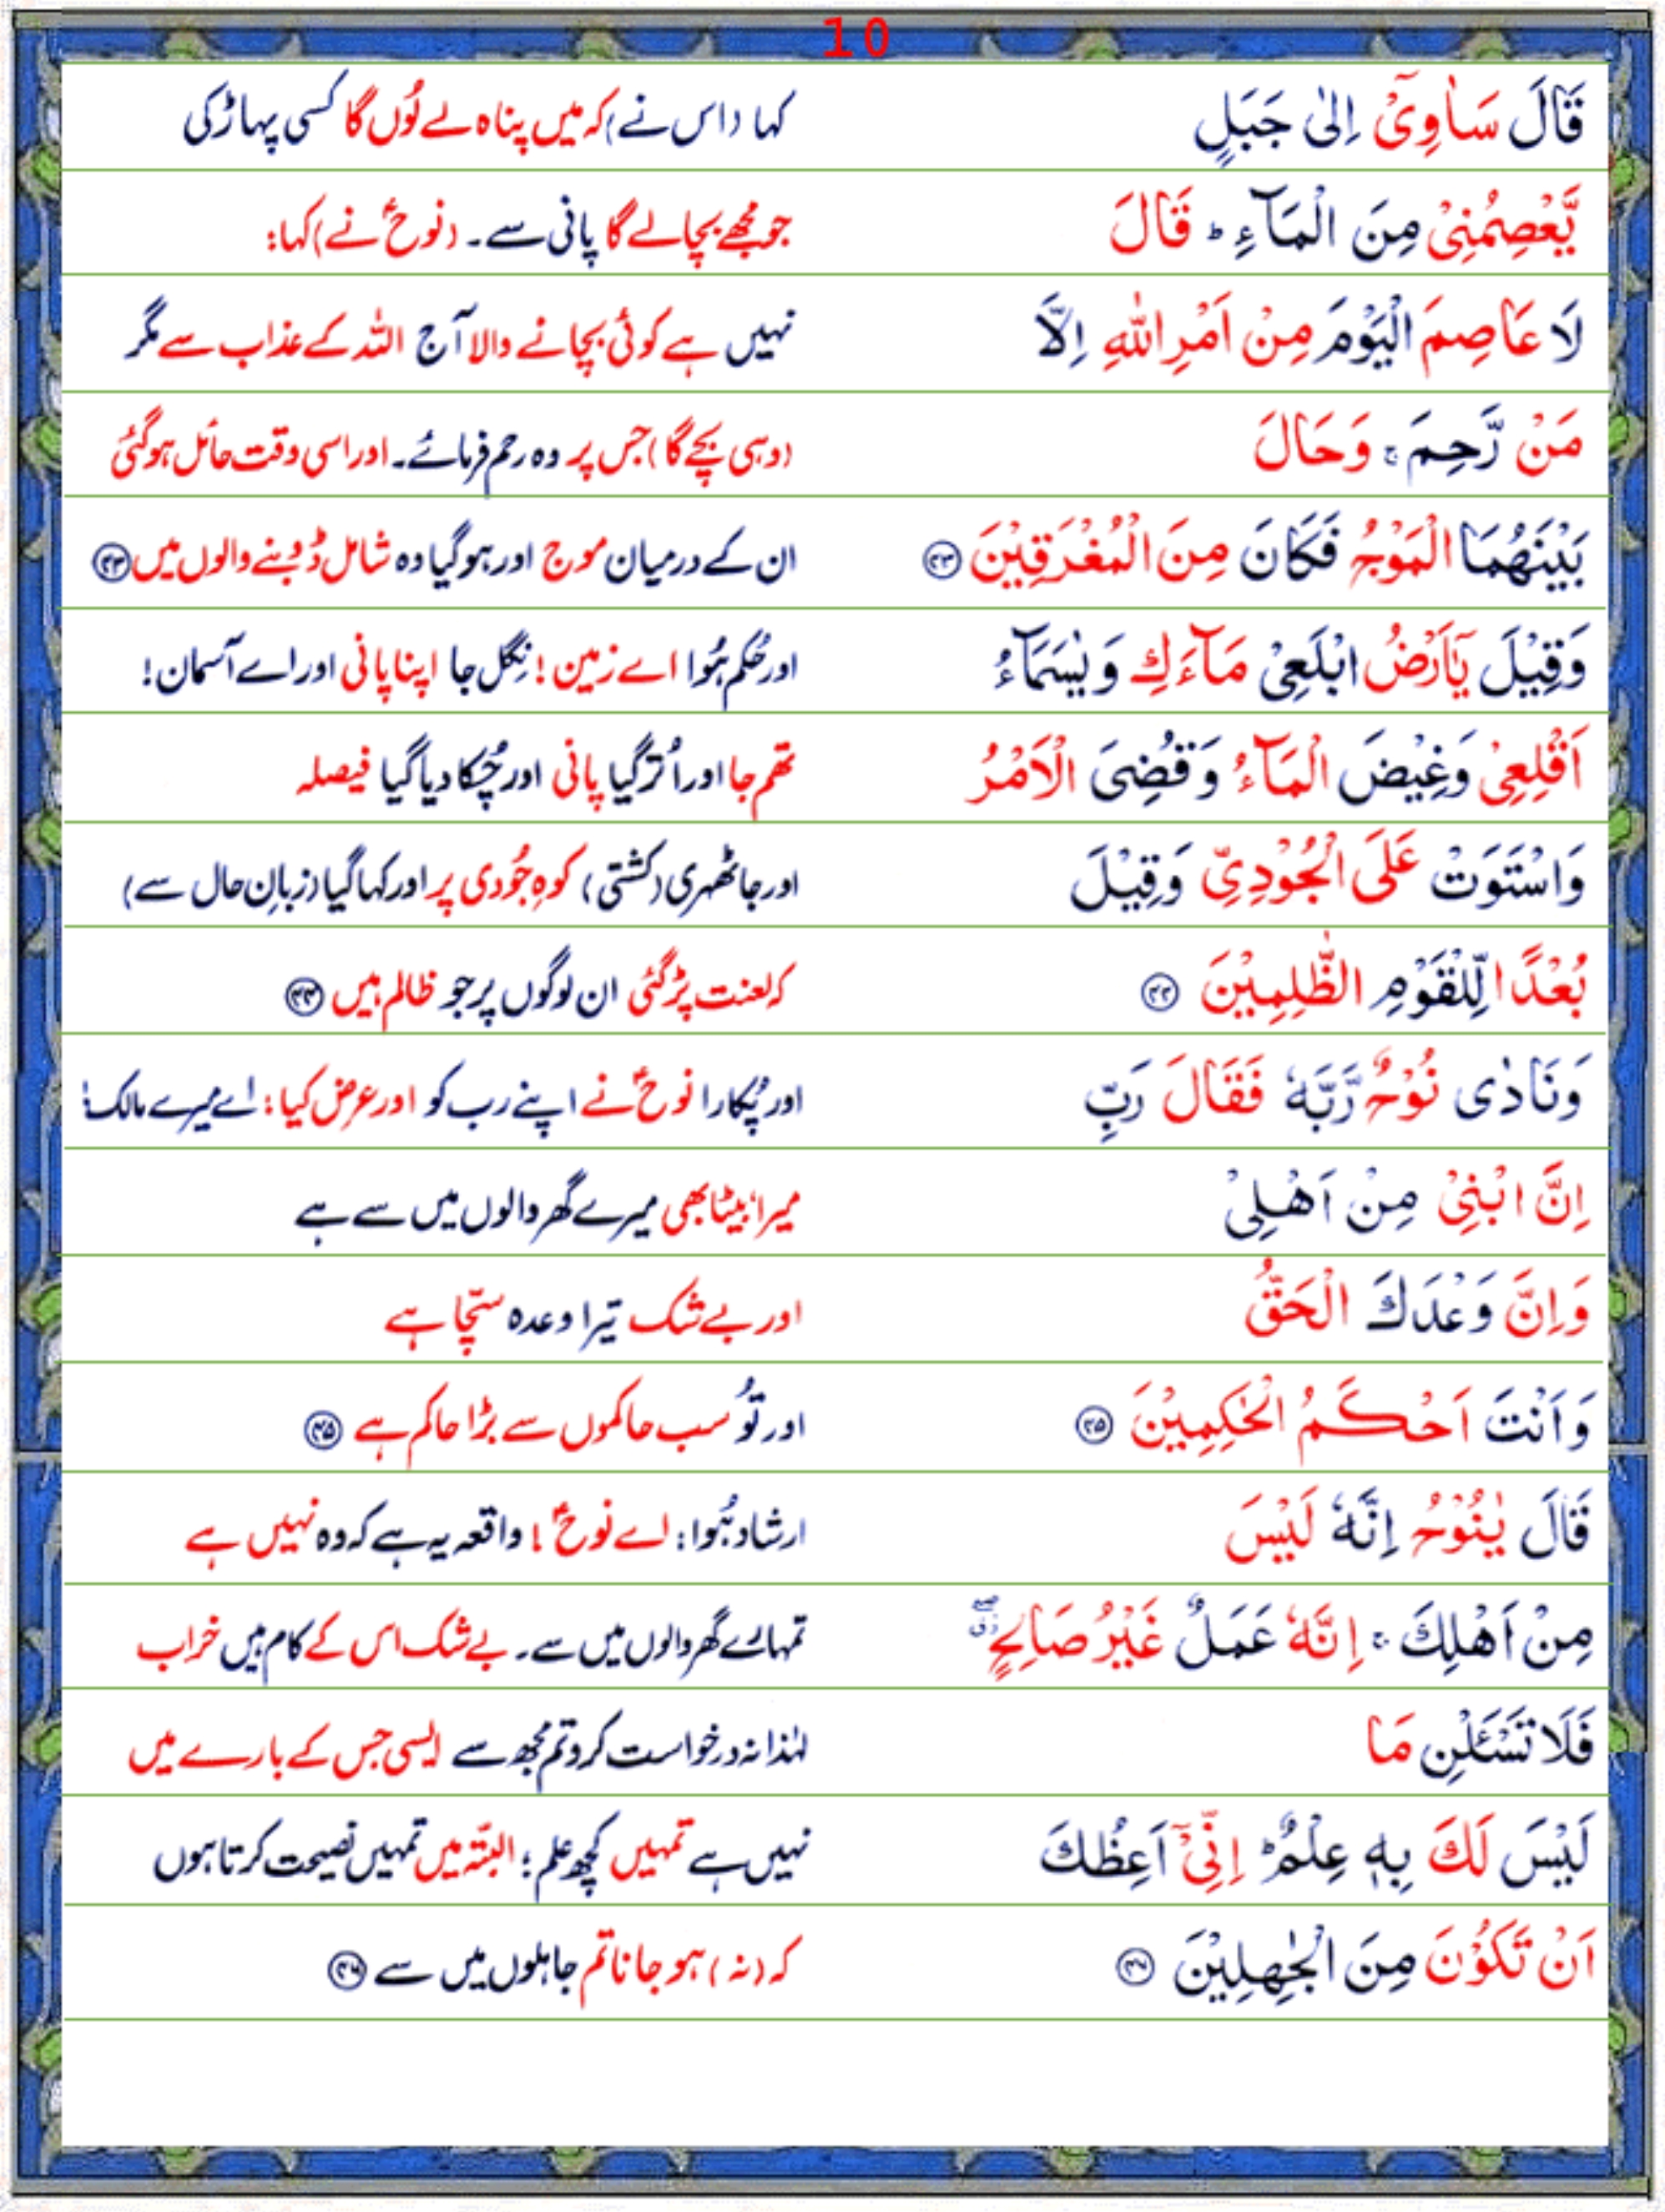 10
قَالَ سَاٰوِیْۤ اِلٰی جَبَلٍ کہا (اس نے) کہ میں پناہ لے لوُں گا کسی پہاڑ کی
یَّعْصِمُنِیْ مِنَ الْمَآءِ ؕ قَالَ جو مجھے بچالے گا پانی سے۔ (نوحؑ نے) کہا:
لَا عَاصِمَ الْیَوْمَ مِنْ اَمْرِ اللّٰهِ اِلَّا نہیں ہے کوئی بچانے والا آج اللہ کے عذاب سے مگر
مَنْ رَّحِمَ ۚ وَحَالَ (وہی بچے گا) جس پر وہ رحم فرمائے۔ اور اسی وقت حائل ہوگئی
بَیْنَهُمَا الْمَوْجُ فَكَانَ مِنَ الْمُغْرَقِیْنَ ۴۳ ان کے درمیان موج اور ہوگیا وہ شامل ڈوبنے والوں میں ۴۳
وَقِیْلَ یٰۤاَرْضُ ابْلَعِیْ مَآءَكِ وَیٰسَمَآءُ اور حُکم ہُوا اے زمین! نِگل جا اپنا پانی اور اے آسمان!
اَقْلِعِیْ وَغِیْضَ الْمَآءُ وَقُضِیَ الْاَمْرُ تھم جا اور اُتر گیا پانی اور چُکا دیا گیا فیصلہ
وَاسْتَوَتْ عَلَی الْجُوْدِیِّ وَقِیْلَ اور جا ٹھہری (کشتی) کوہِ جُودی پر اور کہا گیا (زبانِ حال سے)
بُعْدًا لِّلْقَوْمِ الظّٰلِمِیْنَ ۴۴ کہ لعنت پڑگئی ان لوگوں پر جو ظالم ہیں ۴۴
وَنَادٰی نُوْحٌ رَّبَّهٗ فَقَالَ رَبِّ اور پُکارا نوحؑ نے اپنے رب کو اور عرض کیا: اے میرے مالک!
اِنَّ ابْنِیْ مِنْ اَهْلِیْ میرا بیٹا بھی میرے گھر والوں میں سے ہے
وَاِنَّ وَعْدَكَ الْحَقُّ اور بے شک تیرا وعدہ سچّا ہے
وَاَنْتَ اَحْكَمُ الْحٰكِمِیْنَ ۴۵ اور تُو سب حاکموں سے بڑا حاکم ہے ۴۵
قَالَ یٰنُوْحُ اِنَّهٗ لَیْسَ ارشاد ہُوا: اے نوحؑ! واقعہ یہ ہے کہ وہ نہیں ہے
مِنْ اَهْلِكَ ۚ اِنَّهٗ عَمَلٌ غَیْرُ صَالِحٍ تمہارے گھر والوں میں سے۔ بے شک اس کے کام ہیں خراب
فَلَا تَسْـَٔلْنِ مَا لہٰذا نہ درخواست کرو تم مجھ سے ایسی جس کے بارے میں
لَیْسَ لَكَ بِهٖ عِلْمٌ ؕ اِنِّیْۤ اَعِظُكَ نہیں ہے تمہیں کچھ علم؛ البتّہ میں تمہیں نصیحت کرتا ہوں
اَنْ تَكُوْنَ مِنَ الْجٰهِلِیْنَ ۴۶ کہ (نہ) ہو جانا تم جاہلوں میں سے ۴۶